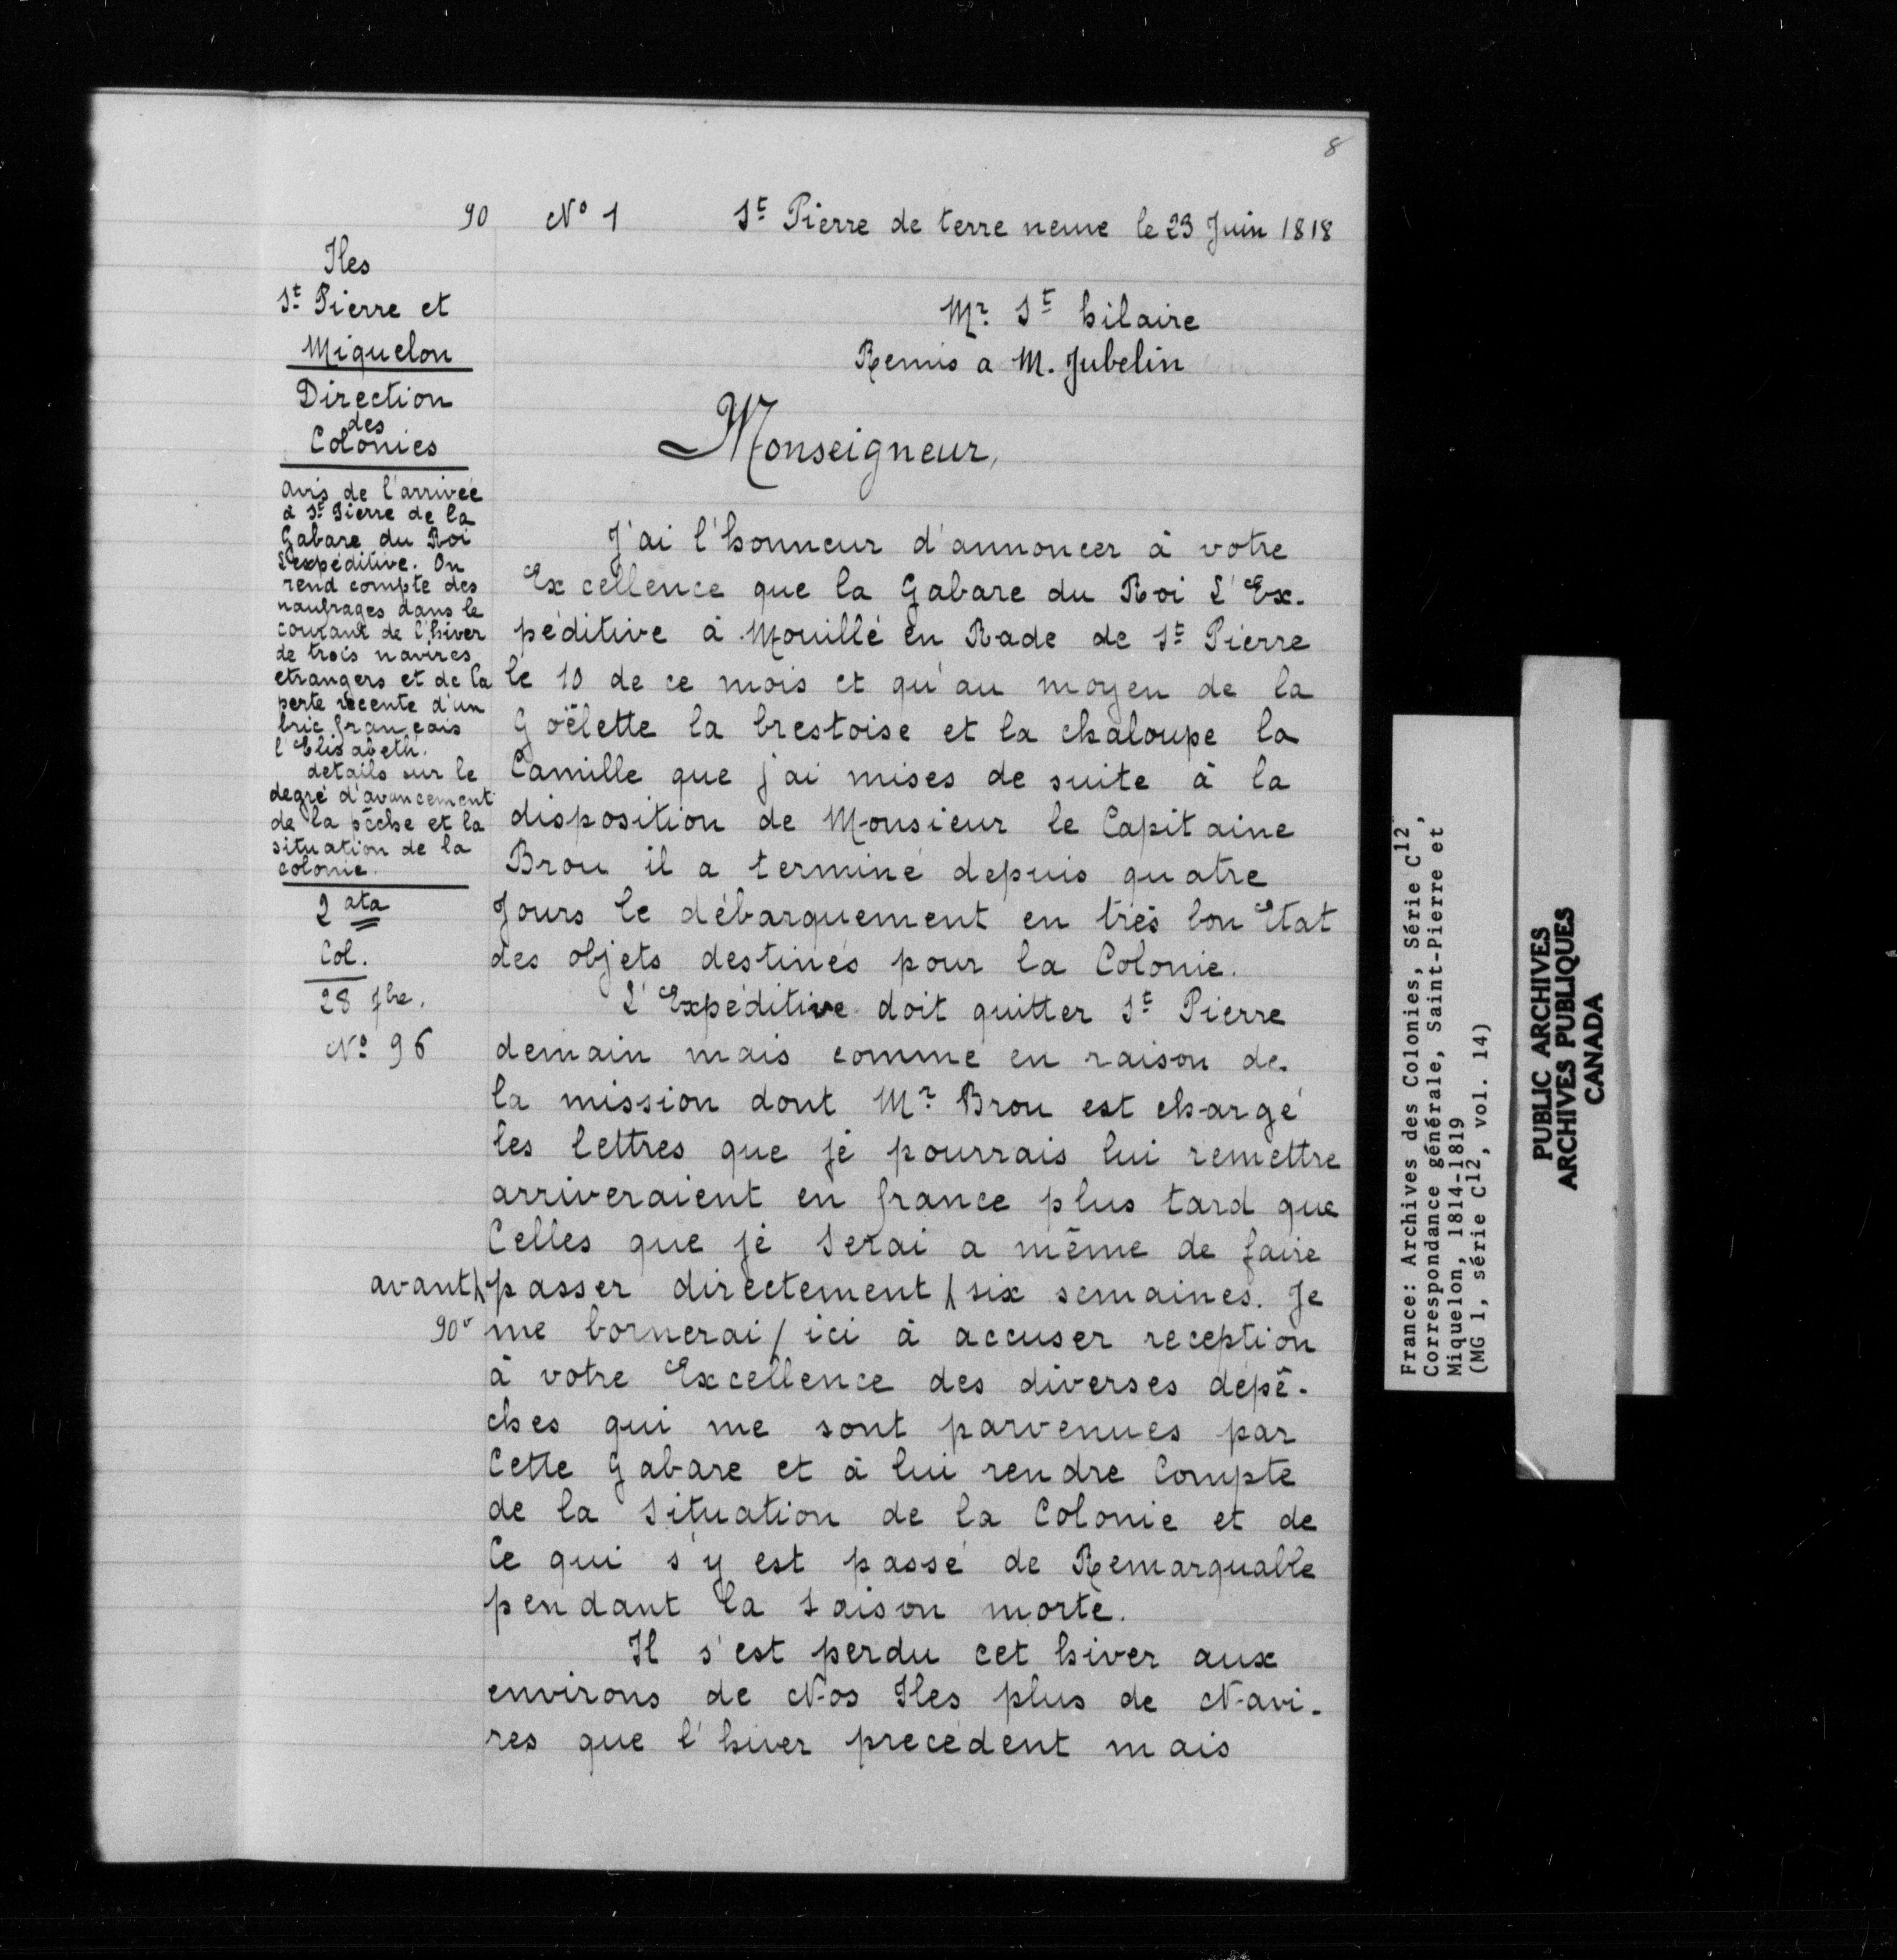 8
90 No 1 St Pierre de terre neuve le 23 Juin 1818
Iles
St Pierre et
Miquelon
Direction
des
Colonies
avis de l'arrivée
à St Pierre de la
Gabare du Roi
L'expéditive. On
rend compte des
naufrages dans le
courant de l'hiver
de trois navires
etrangers et de la
perte récente d'un
bric français
l'Elisabeth.
details sur le
degré d'avancement
de la pêche et la
situation de la
colonie.
2 ata
Col.
28 jbre.
No 96
Mr. St hilaire
Remis a M. Jubelin
Monseigneur,
J'ai l'honneur d'annoncer à votre
Excellence que la Gabare du Roi L'Ex-
péditive à Mouillé en Rade de St Pierre
le 10 de ce mois et qu'au moyen de la
Goëlette la brestoise et la chaloupe la
Camille que j'ai mises de suite à la
disposition de Monsieur le Capitaine
Brou il a terminé depuis quatre
Jours le débarquement en très bon Etat
des objets destinés pour la Colonie.
L'Expéditive doit quitter St Pierre
demain mais comme en raison de
la mission dont Mr Brou est chargé
les lettres que je pourrais lui remettre
arriveraient en france plus tard que
Celles que je serai a même de faire
avant/ passer directement / six semaines. Je
90v me bornerai / ici à accuser reception
à votre Excellence des diverses dépê-
ches qui me sont parvenues par
Cette Gabare et à lui rendre Compte
de la Situation de la Colonie et de
Ce qui s'y est passé de Remarquable
pendant la saison morte.
Il s'est perdu cet hiver aux
environs de Nos Iles plus de Navi-
res que l'hiver precédent mais
France: Archives des Colonies, Série C12,
Correspondance générale, Saint-Pierre et
Miquelon, 1814-1819
(MG 1, série C12, vol. 14)
PUBLIC ARCHIVES
ARCHIVES PUBLIQUES
CANADA